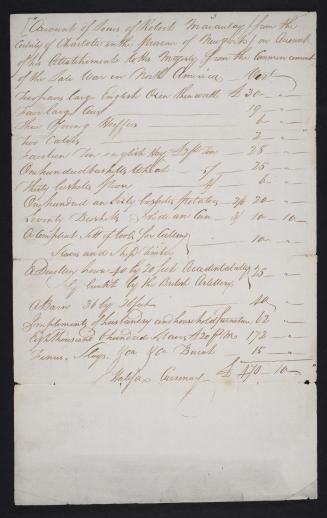 Account of Losses of Robert Macaulay (from the
County of Charlotte in the Province of New York) on Account
of his Attachment to His Majesty from the Commencement
of the Late War in North America Viz.t
Two pairs large English Oxen then worth £ 30 "
Four large Cows 19 "
Three Young Heiffers 6 "
Two Calves 2 "
Fourteen Ton english Hay 28 "
One hundred bushells Wheat 5/ 25 "
Thirty bushells 4/ 6 "
One hundred and Sixty bushells Potatoes 2/6 20 "
Seventy Bushells Indian Corn 3/ 10 - 10 -
A Compleat Sett of tools for Cutting
Staves and Ship Timber 10 "
A Dwelling house 40 by 20 feet Accidentally
by the British Artillery 25 "
A Barn 36 by 40 "
Implements of husbandry and household furniture 62 "
thousand hundred Staves 172 "
Fences, &ca &ca Burnt 15 "
Halifax Currency £ 470 - 10 -